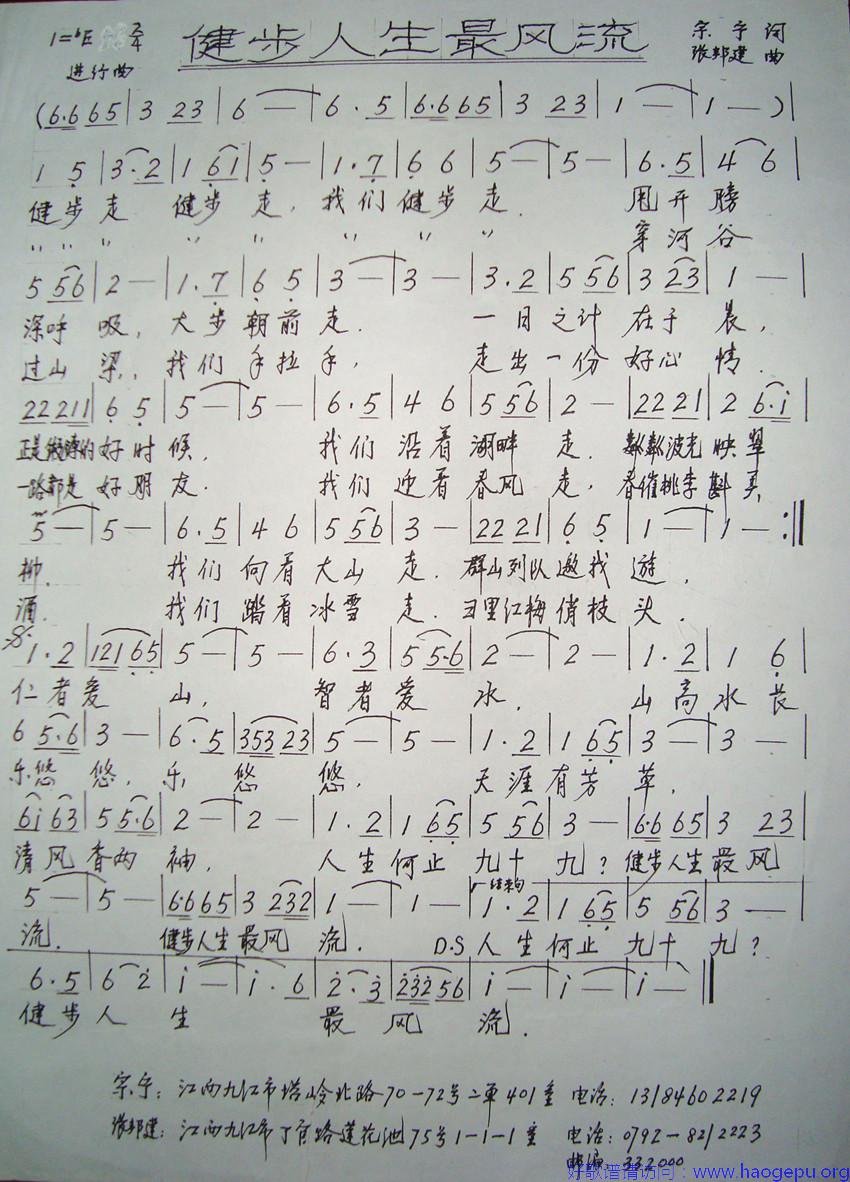 健步人生最风流
1=♭E 2/4
宗宁 词
进行曲
张邦建 曲
(6·6 65|3 23|6 —|6·5|6·6 65|3 23|1 —|1 —)|
1 5|3·2|1 61|5 —|1·7|6 6|5 —|5 —|6·5|4 6|
健步走 健步走,我们健步走. 甩开膀
〃 〃 〃 〃 〃 〃 〃 〃 穿河谷
5 56|2 —|1·7|6 5|3 —|3 —|3·2|5 56|3 23|1 —|
深呼吸,大步朝前走. 一日之计在于晨,
过山梁,我们手拉手, 走出一份好心情.
22 211|6 5|5 —|5 —|6·5|4 6|5 56|2 —|22 21|2 6·i|
正是锻炼的好时候, 我们沿着湖畔走. 粼粼波光映翠
一路都是好朋友. 我们迎着春风走,春催桃李斟美
5 —|5 —|6·5|4 6|5 56|3 —|22 21|6 5|1 —|1 —:‖
柳. 我们向着大山走.群山列队邀我游,
酒. 我们踏着冰雪走.  里红梅俏枝头.
1·2|121 65|5 —|5 —|6·3|5 5·6|2 —|2 —|1·2|1 6|
仁者爱山, 智者爱水, 山高水长
6 5·6|3 —|6·5|353 23|5 —|5 —|1·2|1 65|3 —|3 —|
乐悠悠,乐悠悠, 天涯有芳草,
6i 63|5 5·6|2 —|2 —|1·2|1 65|5 56|3 —|6·6 65|3 23|
清风香两袖, 人生何止九十九?健步人生最风
5 —|5 —|6·6 65|3 232|1 —|1 —|1·2|1 65|5 56|3 —|
结束句
流. 健步人生最风流. D.S 人生何止九十九?
6·5|6 2|i —|i·6|2·3|232 56|i —|i —|i —‖
健步人生 最风流.
宗宁:江西九江市塔岭北路70-72号二单401室 电话:13184602219
张邦建:江西九江市丁官路莲花池75号1-1-1室 电话:0792-8212223
邮编 332000
好歌谱请访问:www.haogepu.org